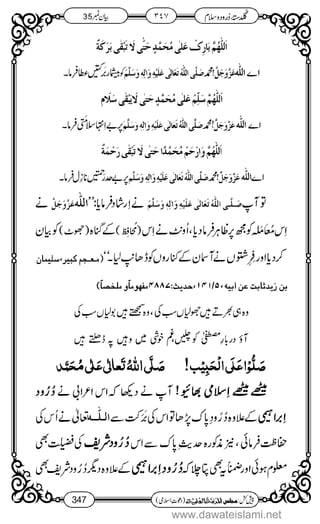 گلدستۂ درود و سلام ۳۴۷ بیان نمبر 35
اَللّٰهُمَّ بَارِكْ عَلٰى مُحَمَّدٍ حَتّٰى لَا تَبْقٰى بَرَكَةٌ
اے اللہ عَزَّوَجَلَّ! محمد صَلَّی اللهُ تَعَالٰی عَلَیْهِ وَاٰلِهٖ وَسَلَّمَ کو بے شمار برکتیں عطا فرما۔
اَللّٰهُمَّ سَلِّمْ عَلٰى مُحَمَّدٍ حَتّٰى لَا يَبْقٰى سَلَامٌ
اے اللہ عَزَّوَجَلَّ! محمد صَلَّی اللهُ تَعَالٰی عَلَیْهِ وَاٰلِهٖ وَسَلَّمَ پر بے انتہا سلامتی فرما۔
اَللّٰهُمَّ وَارْحَمْ مُحَمَّدًا حَتّٰى لَا تَبْقٰى رَحْمَةٌ
اے اللہ عَزَّوَجَلَّ! محمد صَلَّی اللهُ تَعَالٰی عَلَیْهِ وَاٰلِهٖ وَسَلَّمَ پر بے حد رحمتیں نازل فرما۔
تو آپ صَلَّی اللهُ تَعَالٰی عَلَیْهِ وَاٰلِهٖ وَسَلَّمَ نے ارشاد فرمایا: ’’اللہ عَزَّوَجَلَّ نے
اس معاملہ کو مجھ پر ظاہر فرما دیا، اونٹ نے اس (محافظ) کے گناہ (جھوٹ) کو بیان
کر دیا اور فرشتوں نے آسمان کے کناروں کو ڈھانپ لیا۔‘‘ (معجم کبیر، سلیمان
بن زید ثابت عن ابیه، ۱۴۱/۵، حدیث:۴۸۸۷ مفهوماً و ملخصاً)
وہ ہی بھرتے ہیں جھولیاں سب کی، وہ سمجھتے ہیں بولیاں سب کی
آؤ دربارِ مصطفیٰ کو چلیں، غم خوشی میں وہیں پہ ڈھلتے ہیں
صَلُّوْا عَلَى الْحَبِيْب! صَلَّى اللهُ تَعَالٰى عَلٰى مُحَمَّد
میٹھے میٹھے اسلامی بھائیو! آپ نے دیکھا کہ اس اعرابی نے دُرُودِ
ابراہیمی کے علاوہ درود پاک پڑھا تو اس کی برکت سے اللہ تعالیٰ نے اس کی
حفاظت فرمائی، نیز مذکورہ حدیث پاک سے اس دُرُود شریف کی فضیلت بھی
معلوم ہوئی اور ضمناً یہ بھی پتا چلا کہ دُرُودِ ابراہیمی کے علاوہ دیگر دُرُود شریف بھی
پیش کش: مجلس المدینۃ العلمیۃ (دعوتِ اسلامی) 347
www.dawateislami.net